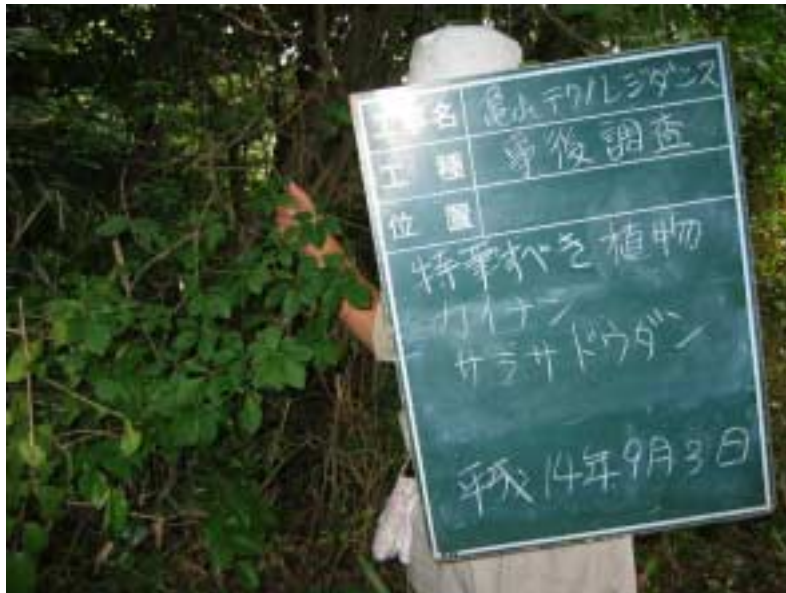 工事名 亀山テクノレジデンス
工種 事後調査
位置
特筆すべき植物
カイナン
サラサドウダン
平成14年9月3日